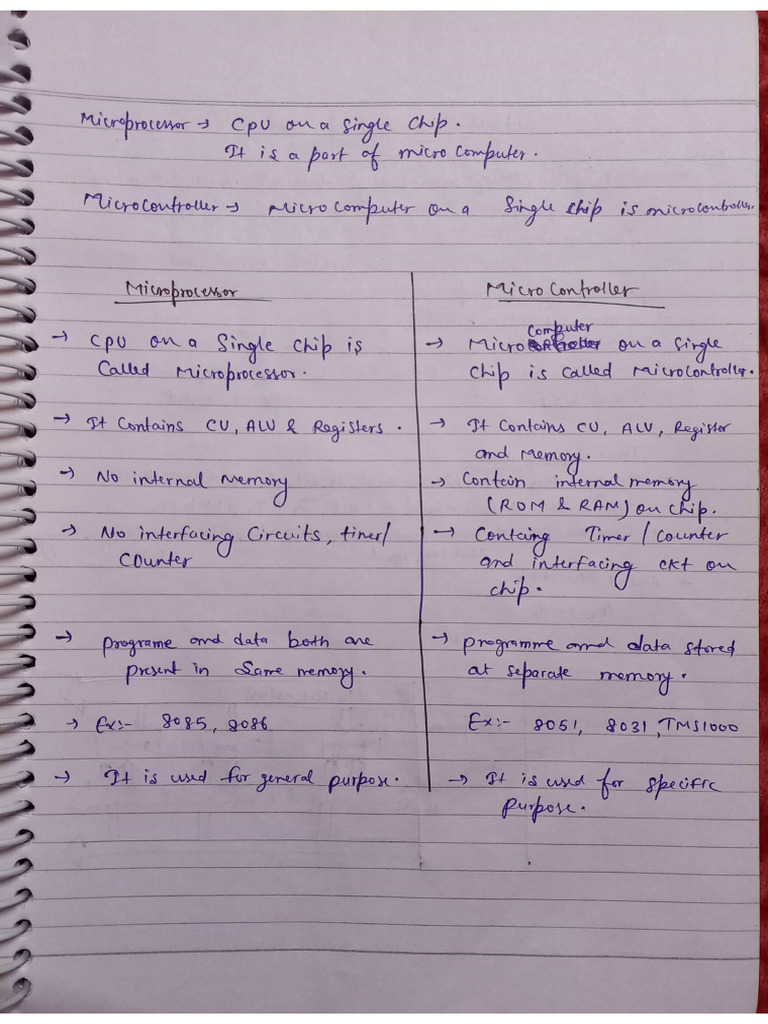 Microprocessor → CPU on a single chip.
It is a part of micro computer.
Microcontroller → Micro computer on a single chip is microcontroller.
Microprocessor
→ CPU on a single chip is
called microprocessor.
→ It contains CU, ALU & Registers.
→ No internal memory
→ No interfacing circuits, timer/
counter
→ programe and data both are
present in same memory.
→ Ex:- 8085, 8086
→ It is used for general purpose.
Micro Controller
→ Micro computer on a single
chip is called microcontroller.
→ It contains CU, ALU, Register
and memory.
→ Contain internal memory
(ROM & RAM) on chip.
→ Containg Timer / counter
and interfacing ckt on
chip.
→ programme and data stored
at separate memory.
Ex:- 8051, 8031, TMS1000
→ It is used for specific
purpose.